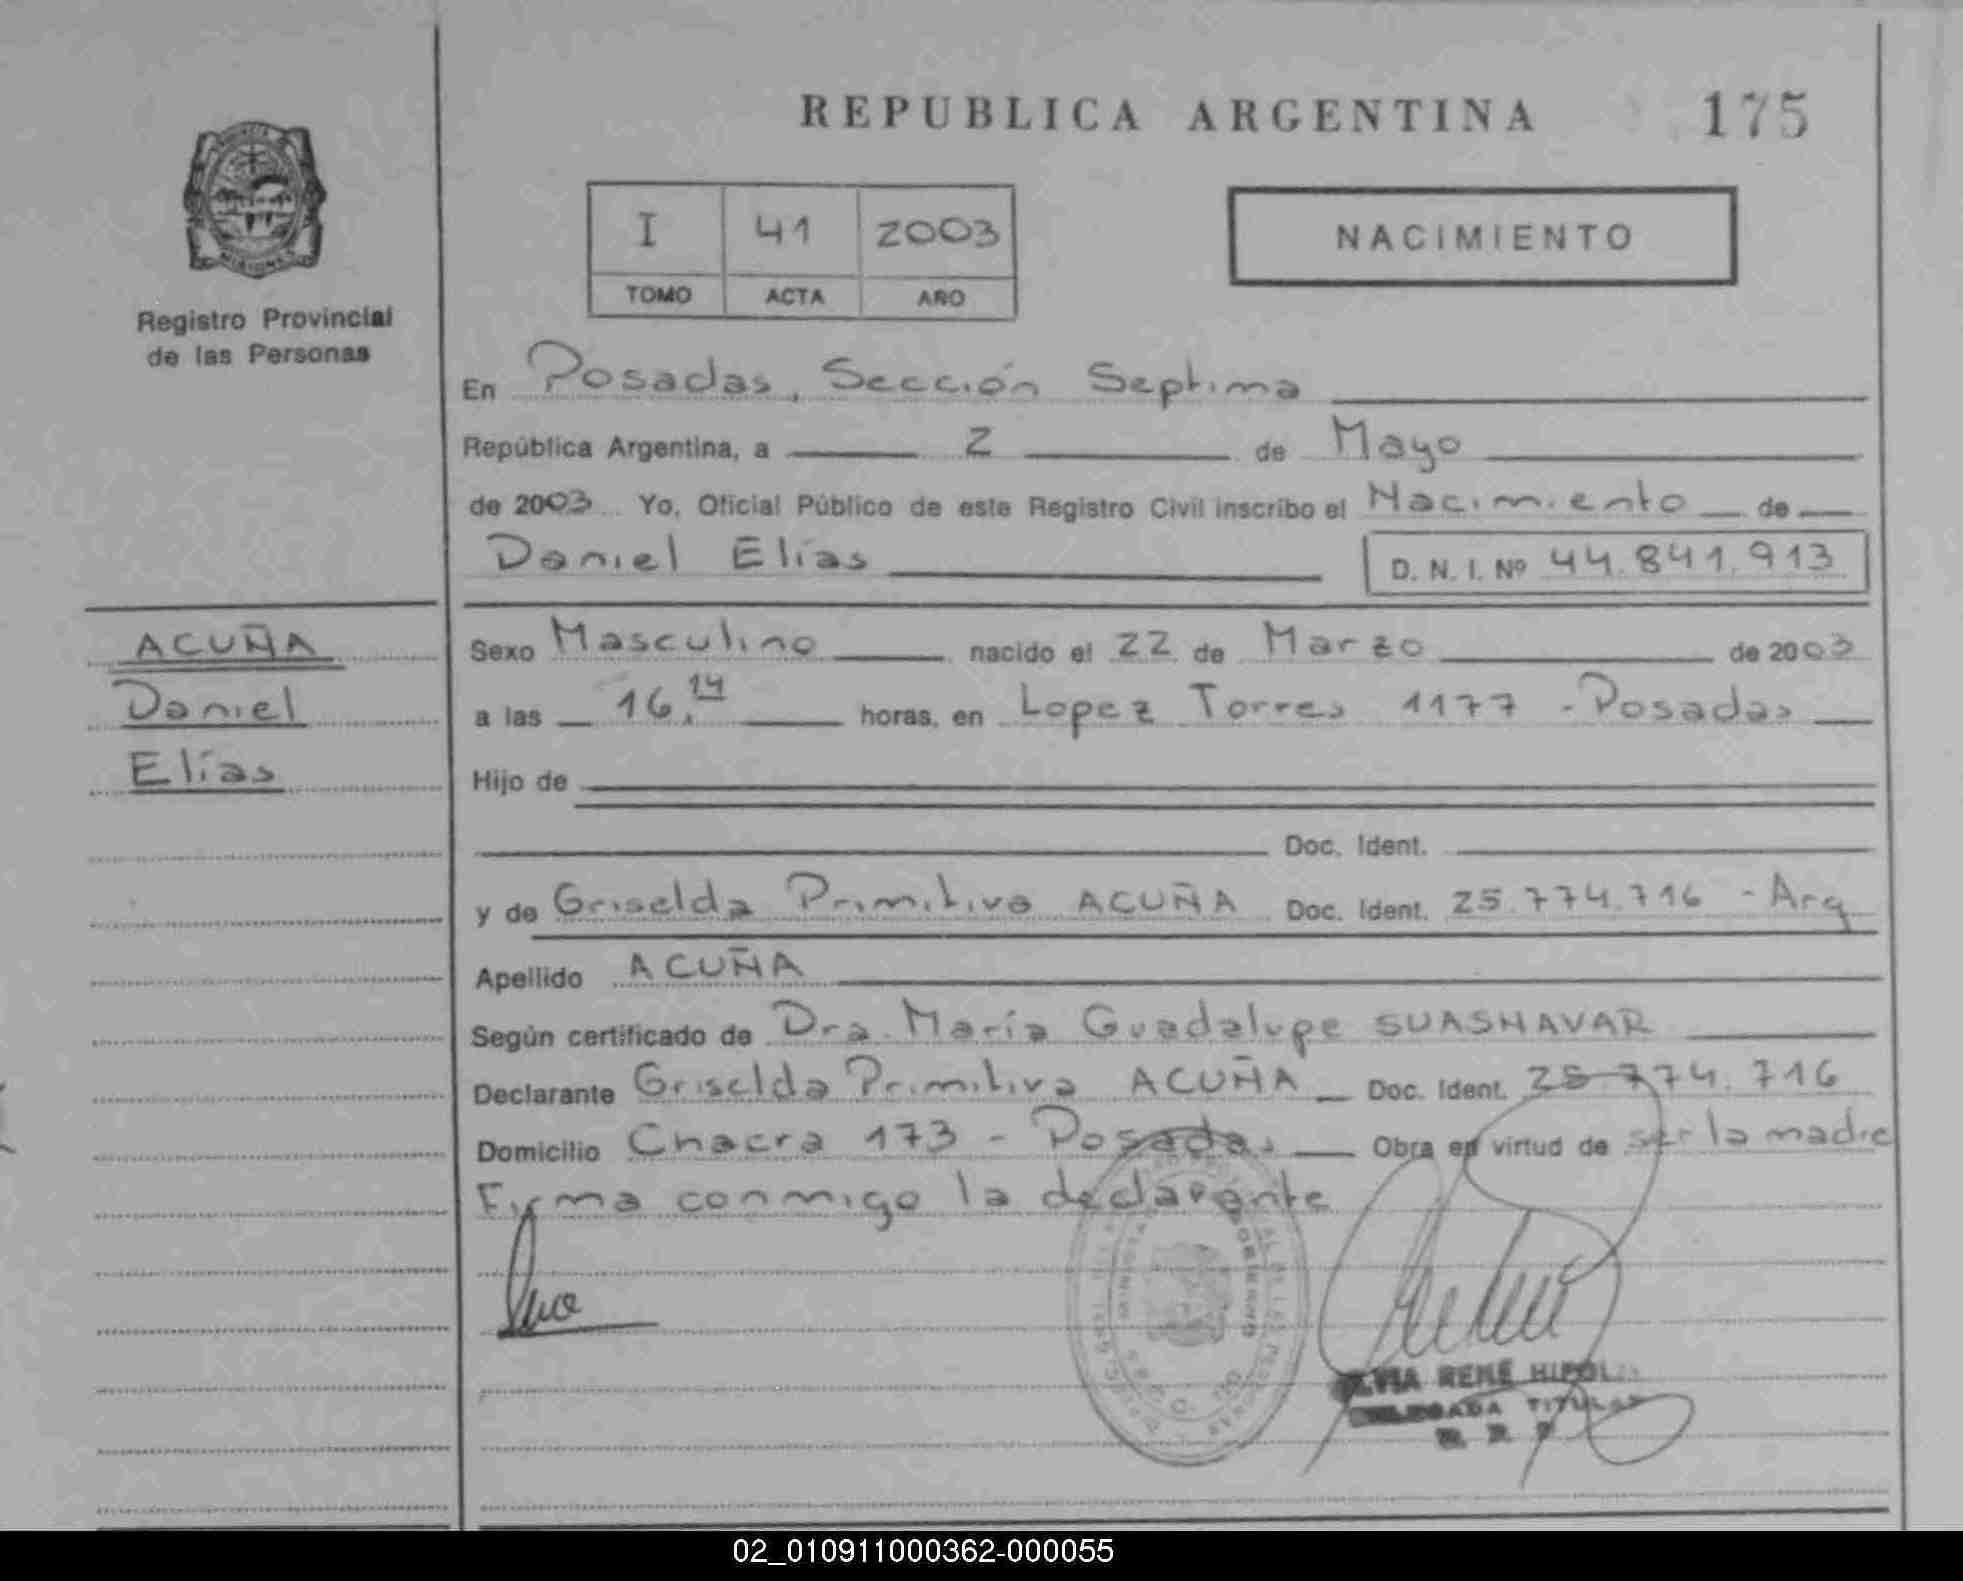 REPUBLICA ARGENTINA 175
MISIONES
Registro Provincial
de las Personas
I 41 2003
TOMO ACTA AÑO
NACIMIENTO
En Posadas, Sección Septima
República Argentina, a 2 de Mayo
de 2003 Yo, Oficial Público de este Registro Civil inscribo el Nacimiento de
Daniel Elías D. N. I. Nº 44.841.913
ACUÑA
Daniel
Elías
Sexo Masculino nacido el 22 de Marzo de 2003
a las 16.14 horas, en Lopez Torres 1177 - Posadas
Hijo de
Doc. Ident.
y de Griselda Primitiva ACUÑA Doc. Ident. 25.774.716 - Arg
Apellido ACUÑA
Según certificado de Dra. María Guadalupe SUASNAVAR
Declarante Griselda Primitiva ACUÑA Doc. Ident. 25.774.716
Domicilio Chacra 173 - Posadas Obra en virtud de ser la madre
Firma conmigo la declarante
RENE HIPOL
TITULAR
02_010911000362-000055